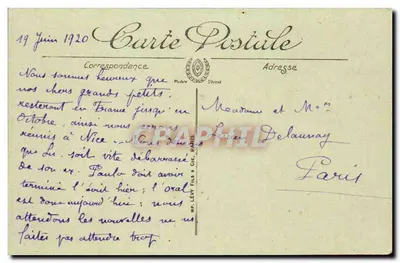 19 Juin 1920
Carte Postale
Correspondance
Adresse
Nous sommes heureux que
nos chers grands petits
resteront en France jusqu'en
Octobre, ainsi nous
réunis à Nice
que soit vite débarrassé
de son ex. Paulo doit avoir
terminé l'écrit hier; l'oral
est donc aujourd'hui; nous
attendons les nouvelles ne ns
faites pas attendre trop
Madame et Mr
Delaunay
Paris
CPRAPHIC
LÉVY FILS & Cie, PARIS